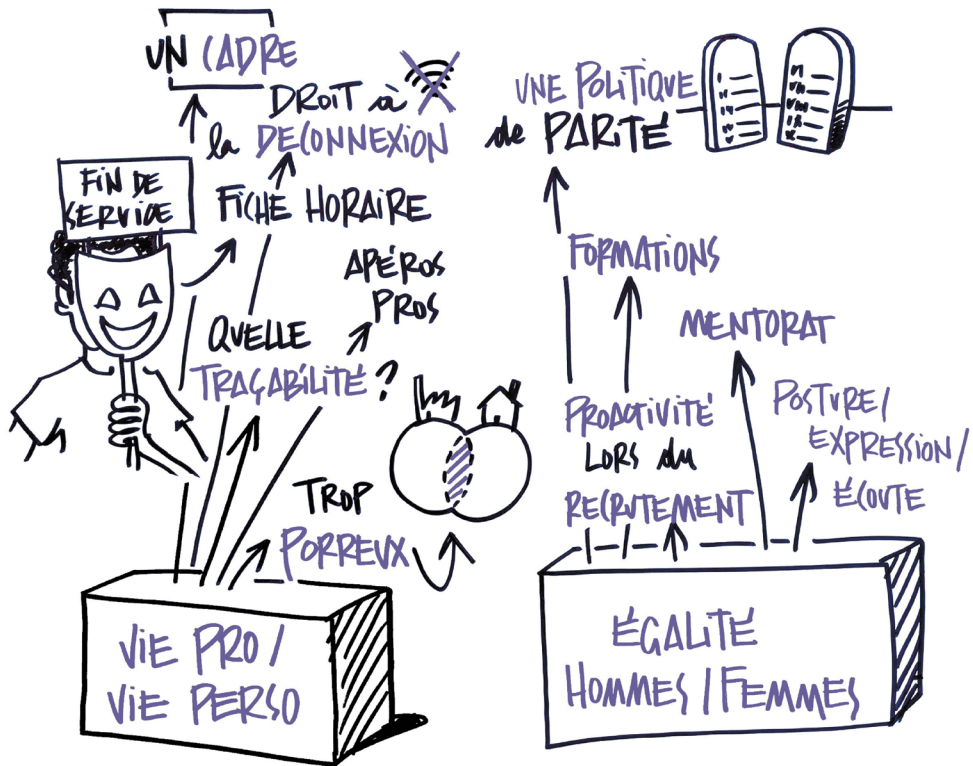 UN CADRE
DROIT à
la DECONNEXION
FIN DE
SERVICE
FICHE HORAIRE
APÉROS
PROS
QUELLE
TRAÇABILITÉ ?
TROP
PORREUX
VIE PRO /
VIE PERSO
UNE POLITIQUE
de PARITÉ
I
II
III
IV
V
VI
VII
VIII
IX
X
FORMATIONS
MENTORAT
PROACTIVITÉ
LORS du
RECRUTEMENT
POSTURE /
EXPRESSION /
ÉCOUTE
ÉGALITÉ
HOMMES / FEMMES